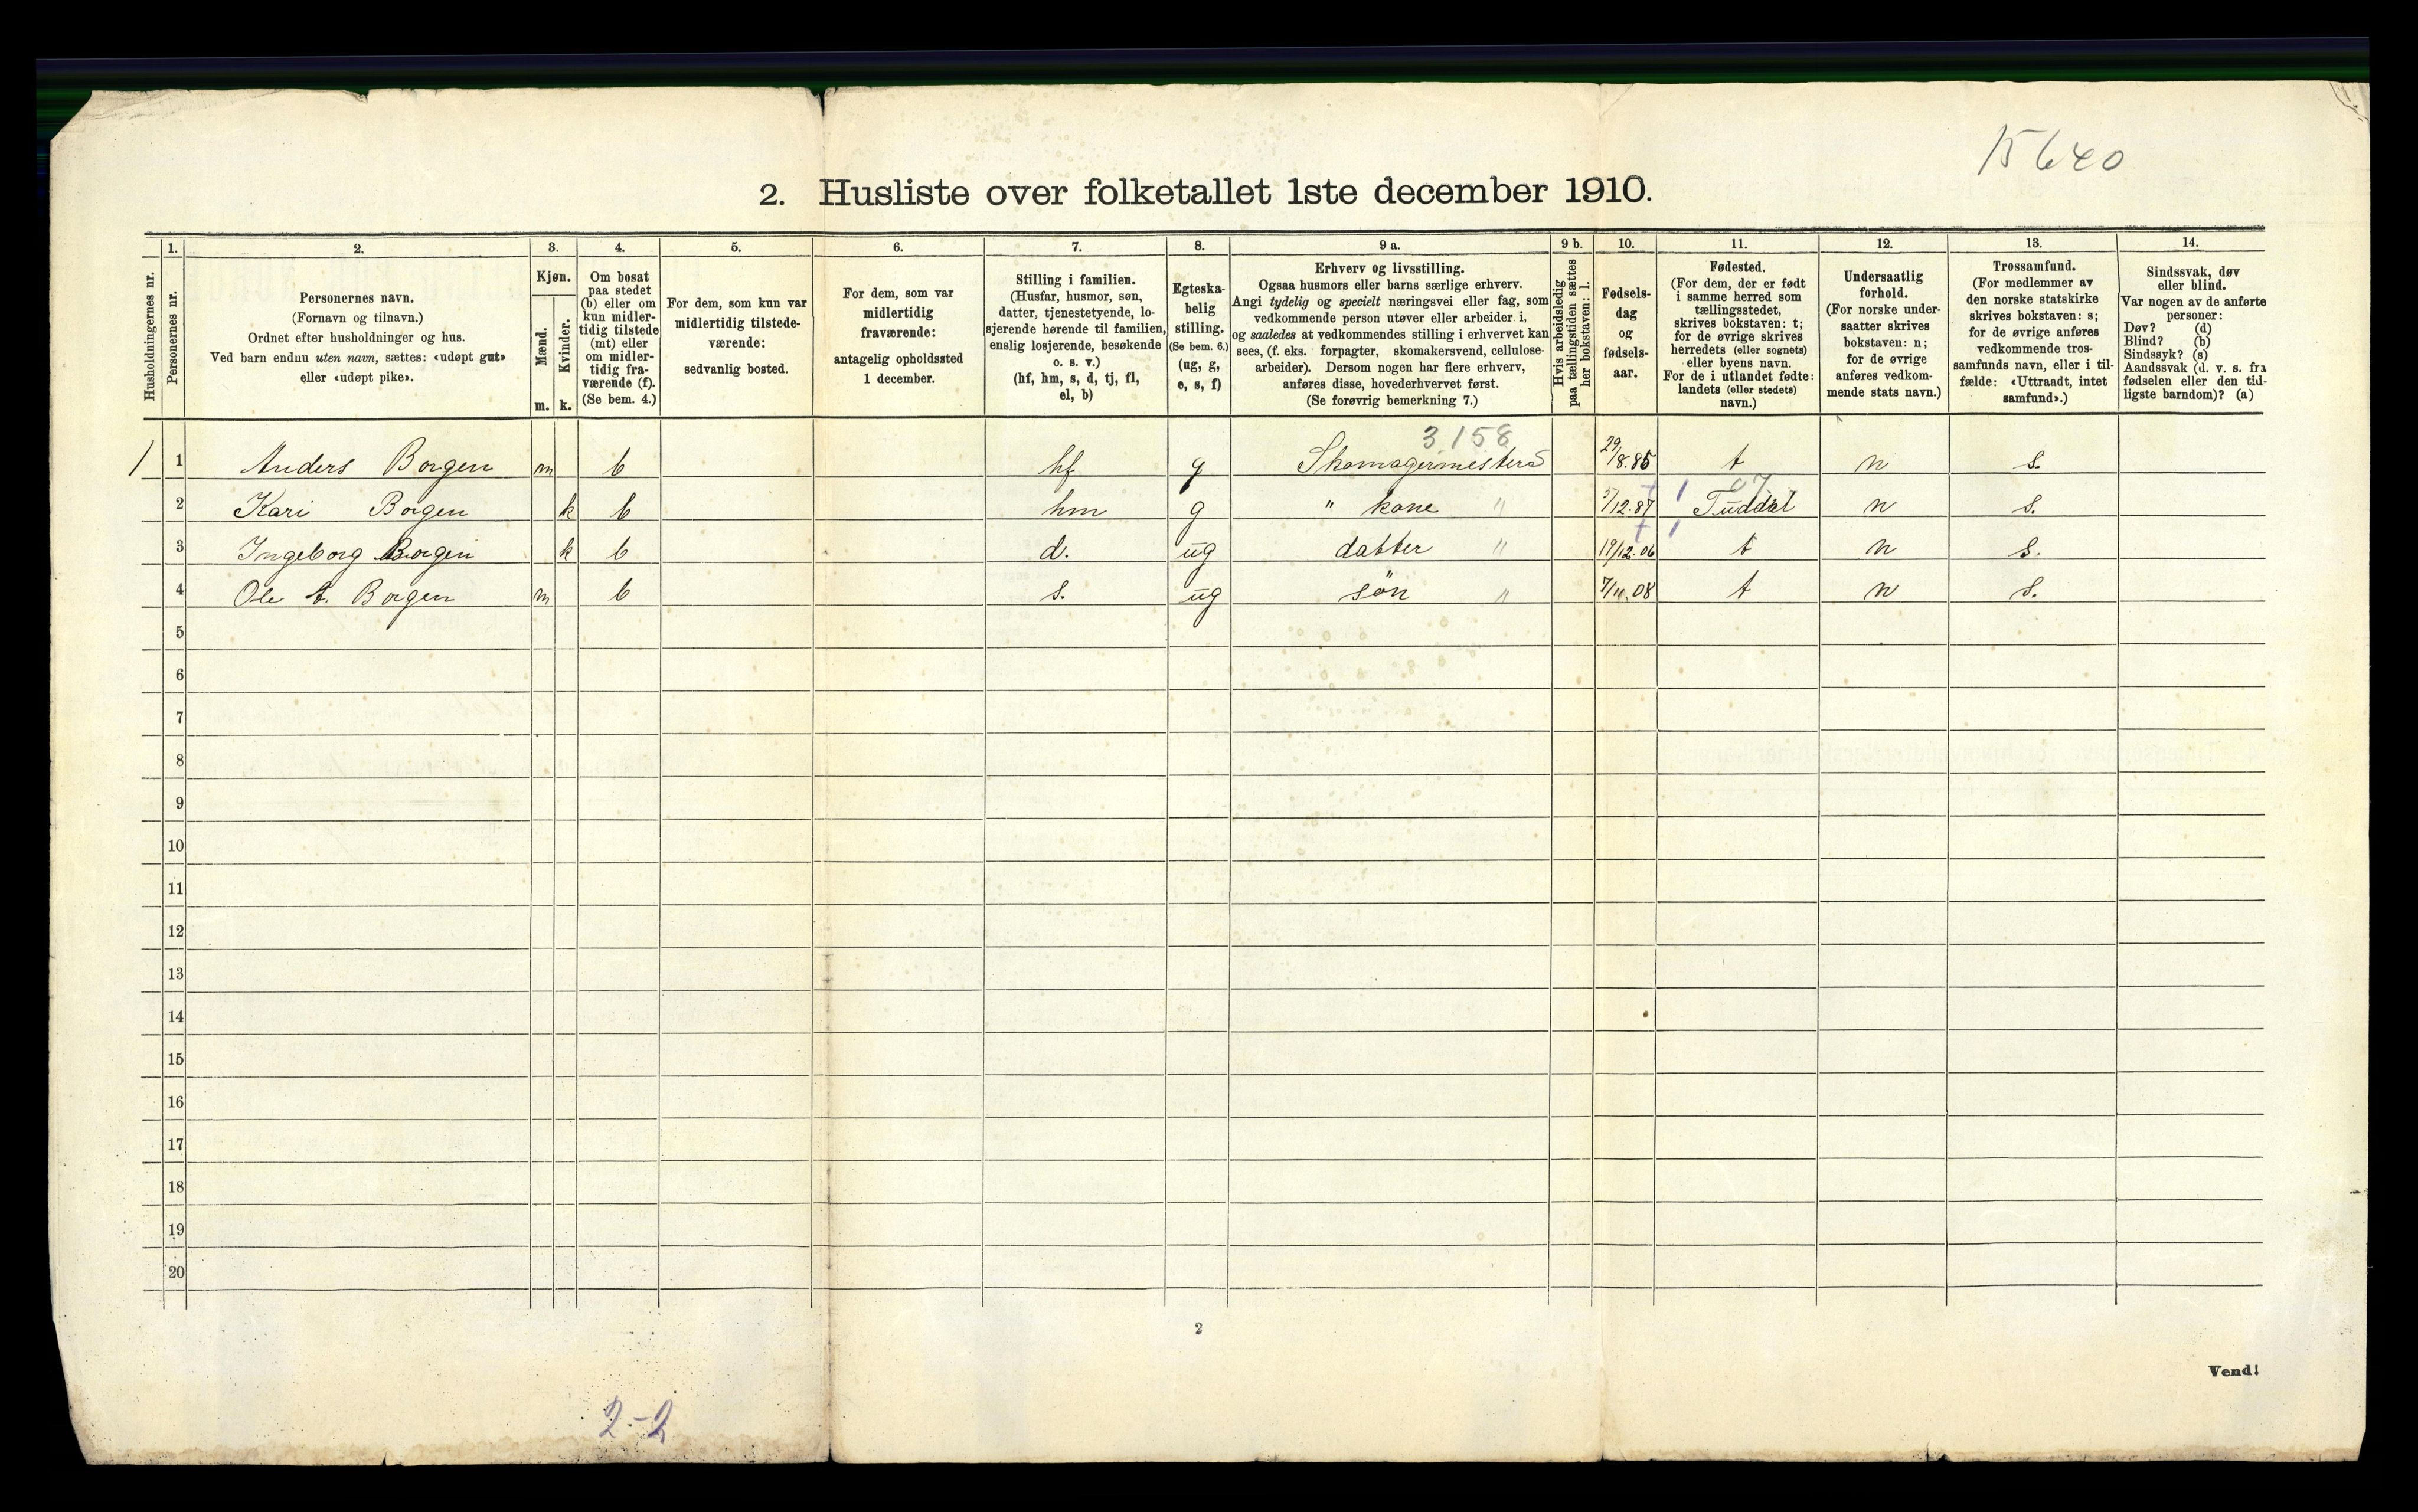 15640
2. Husliste over folketallet 1ste december 1910.
Husholdningernes nr.
1.
Personernes nr.
2.
Personernes navn.
(Fornavn og tilnavn.)
Ordnet efter husholdninger og hus.
Ved barn endnu uten navn, sættes: «udøpt gut»
eller «udøpt pike».
3.
Kjøn.
Mænd.
m.
Kvinder.
k.
4.
Om bosat
paa stedet
(b) eller om
kun midler-
tidig tilstede
(mt) eller
om midler-
tidig fra-
værende (f).
(Se bem. 4.)
5.
For dem, som kun var
midlertidig tilstede-
værende:
sedvanlig bosted.
6.
For dem, som var
midlertidig
fraværende:
antagelig opholdssted
1 december.
7.
Stilling i familien.
(Husfar, husmor, søn,
datter, tjenestetyende, lo-
sjerende hørende til familien,
enslig losjerende, besøkende
o. s. v.)
(hf, hm, s, d, tj, fl,
el, b)
8.
Egteska-
belig
stilling.
(Se bem. 6.)
(ug, g,
e, s, f)
9 a.
Erhverv og livsstilling.
Ogsaa husmors eller barns særlige erhverv.
Angi tydelig og specielt næringsvei eller fag, som
vedkommende person utøver eller arbeider i,
og saaledes at vedkommendes stilling i erhvervet kan
sees, (f. eks. forpagter, skomakersvend, cellulose-
arbeider). Dersom nogen har flere erhverv,
anføres disse, hovederhvervet først.
(Se forøvrig bemerkning 7.)
9 b.
Hvis arbeidsledig
paa tællingstiden sættes
her bokstaven: l.
10.
Fødsels-
dag
og
fødsels-
aar.
11.
Fødested.
(For dem, der er født
i samme herred som
tællingsstedet,
skrives bokstaven: t;
for de øvrige skrives
herredets (eller sognets)
eller byens navn.
For de i utlandet fødte:
landets (eller stedets)
navn.)
12.
Undersaatlig
forhold.
(For norske under-
saatter skrives
bokstaven: n;
for de øvrige
anføres vedkom-
mende stats navn.)
13.
Trossamfund.
(For medlemmer av
den norske statskirke
skrives bokstaven: s;
for de øvrige anføres
vedkommende tros-
samfunds navn, eller i til-
fælde: «Uttraadt, intet
samfund».)
14.
Sindssvak, døv
eller blind.
Var nogen av de anførte
personer:
Døv? (d)
Blind? (b)
Sindssyk? (s)
Aandssvak (d. v. s. fra
fødselen eller den tid-
ligste barndom)? (a)
3158
1 1 Anders Borgen m b hf g Skomagermester 29/8.85 t n s.
07
2 Kari Borgen k b hm g " kone " 5/12.87 Tuddal n s.
3 Ingeborg Borgen k b d. ug datter " 19/12.06 t n s.
4 Ole A. Borgen m b s. ug søn " 7/11.08 t n s.
5
6
7
8
9
10
11
12
13
14
15
16
17
18
19
20
2
Vend!
2-2